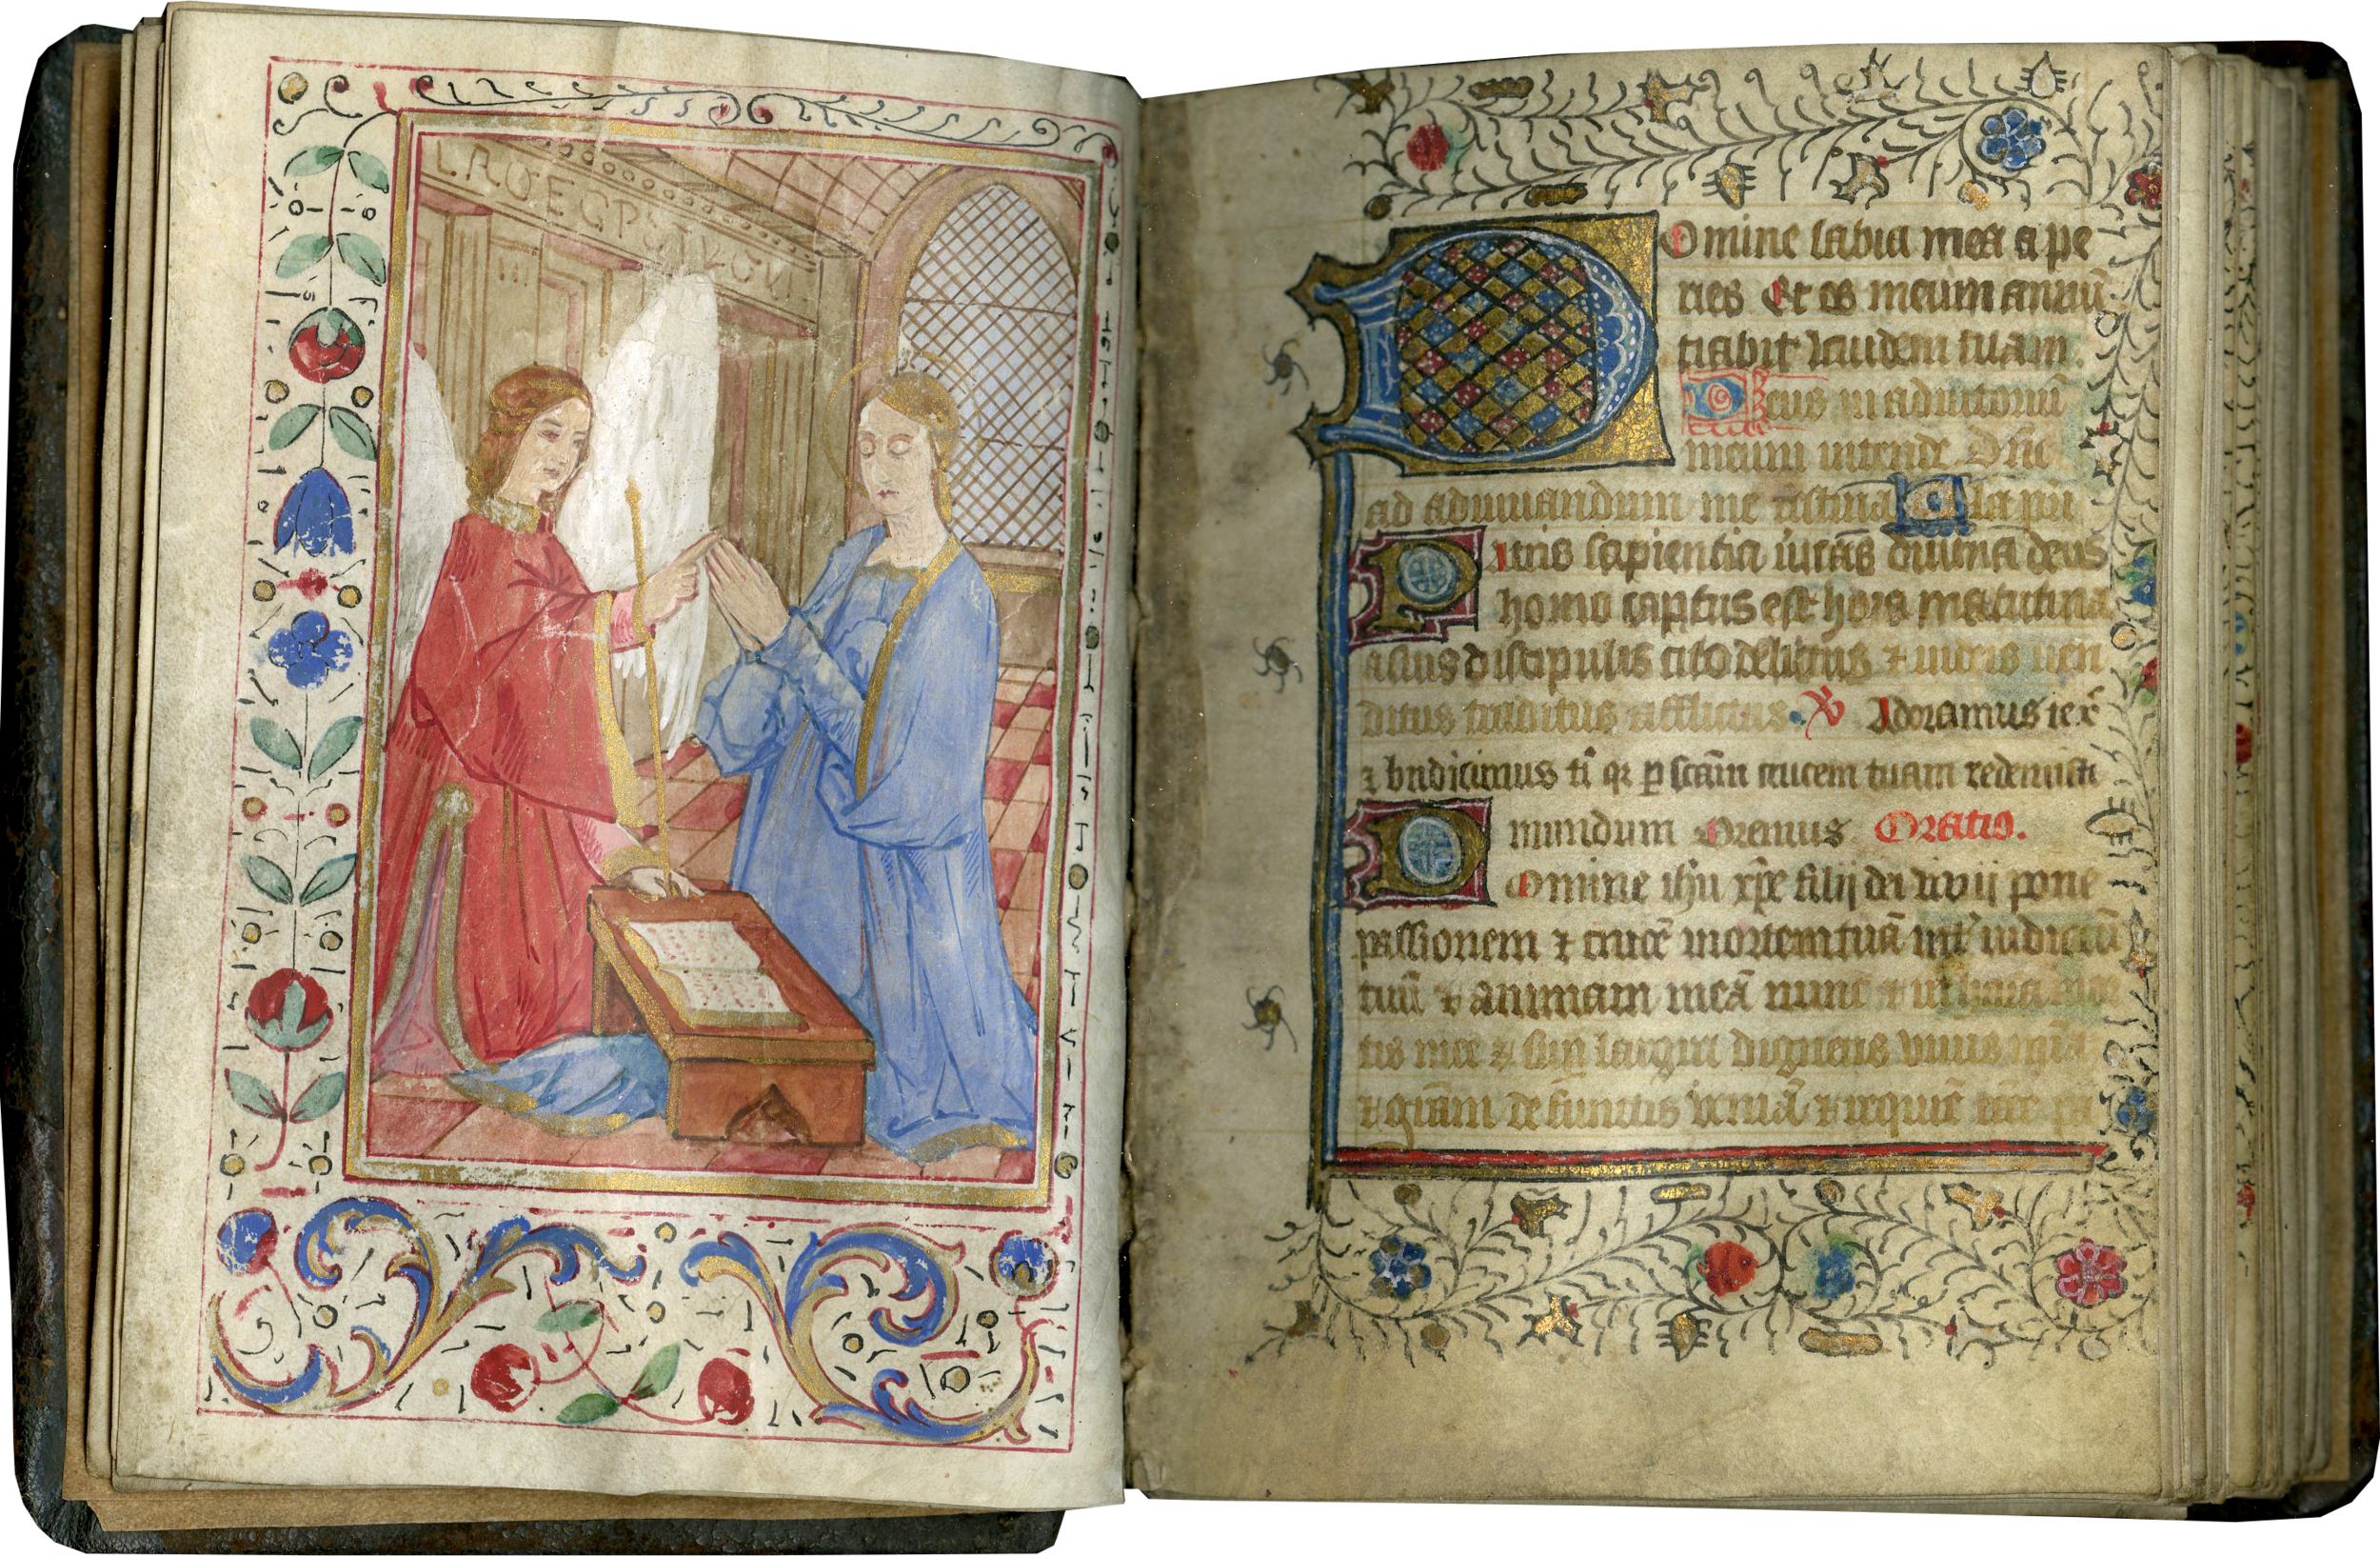 Domine labia mea a pe
ries Et os meum annū
tiabit laudem tuam.
Deus in adiutoriū
meum intende Dñe
ad adiuuandum me festina Gla pri
Patris sapientia ūitas diuina deus
homo captus est hora matutina
a suis discipulis cito relictus ⁊ iudeis uen
ditus traditus afflictus. V Adoramus te xp̄e
⁊ bndicimus ti qr p scām crucem tuam redemisti
mundum Oremus Oratio.
Domine ihu xp̄e filij dei vivij pone
passionem ⁊ crucē mortem tuā int iudiciū
tuū ⁊ animam meā nunc ⁊ in hora mor
tis mee ⁊ largiri digneris viuis
⁊ grām defunctis veniā ⁊ requiē